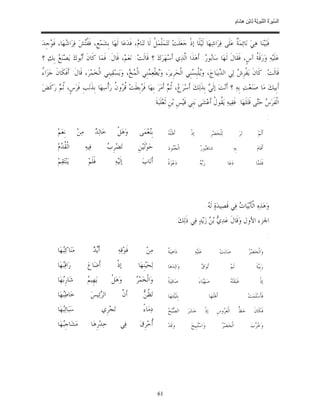 السيرة النبوية لابن هشام
فَبَيْنَا هِيَ نَائِمَةٌ عَلَى فِرَاشِهَا لَيْلًا إذْ جَعَلَتْ تَتَمَلْمَلُ لَا تَنَامُ، فَدَعَا لَهَا بِشَمْعٍ، فَفُتِّشَ فِرَاشُهَا، فَوُجِدَ
عَلَيْهِ وَرَقَةُ آسٍ، فَقَالَ لَهَا سَابُورُ أَهَذَا الَّذِي أَسْهَرَكِ ؟ قَالَتْ نَعَمْ، قَالَ فَمَا كَانَ أَبُوكِ يَصْنَعُ بِكِ ؟
قَالَتْ كَانَ يَفْرِشُ لِي الدِّيبَاجَ، وَيُلْبِسُنِي الْحَرِيرَ، وَيُطْعِمُنِي الْمُخَّ، وَيَسْقِينِي الْخَمْرَ، قَالَ أَفَكَانَ جَزَاءُ
أَبِيكِ مَا صَنَعْتِ بِهِ ؟ أَنْتِ إلَيَّ بِذَلِكَ أَسْرَعُ، ثُمَّ أَمَرَ بِهَا فَرُبِطَتْ قُرُونُ رَأْسِهَا بِذَنَبِ فَرَسٍ، ثُمَّ رَكَضَ
الْفَرَسُ حَتَّى قَتَلَهَا فَفِيهِ يَقُولُ أَعْشَى بَنِي قَيْسِ بْنِ ثَعْلَبَةَ
أَلَمْ تَرَ لِلْحَضْرِ إذْ أَهْلُهُ بِنُعْمَى وَهَلْ خَالِدٌ مِنْ نَعِمْ
أَقَامَ بِهِ شَاهَبُورُ الْجُنُودَ حَوْلَيْنِ تَضْرِبُ فِيهِ الْقُدُمْ
فَلَمَّا دَعَا رَبَّهُ دَعْوَةً أَنَابَ إلَيْهِ فَلَمْ يَنْتَقِمْ
وَهَذِهِ الْأَبْيَاتُ فِي قَصِيدَةٍ لَهُ
الجزء الأول وَقَالَ عَدِيُّ بْنُ زَيْدٍ فِي ذَلِكَ
وَالْحَضْرُ صَابَتْ عَلَيْهِ دَاهِيَةٌ مِنْ فَوْقِهِ أَيِّدٌ مَنَاكِبُهَا
رَبِيَّةً لَمْ تُوَقَّ وَالِدَهَا لِحَيْنِهَا إذْ أَضَاعَ رَاقِبُهَا
إذْ غَبَقَتْهُ صَهْبَاءَ صَافِيَةً وَالْخَمْرُ وَهَلٌ يَهِيمُ شَارِبُهَا
فَأَسْلَمَتْ أَهْلَهَا بِلَيْلَتِهَا تَظُنُّ أَنَّ الرَّئِيسَ خَاطِبُهَا
فَكَانَ حَظُّ الْعَرُوسِ إذْ جَشَرَ الصُّبْحُ دِمَاءً تَجْرِي سَبَائِبُهَا
وَخُرِّبَ الْحَضْرُ وَاسْتُبِيحَ وَقَدْ أُحْرِقَ فِي خِدْرِهَا مَشَاجِبُهَا
61